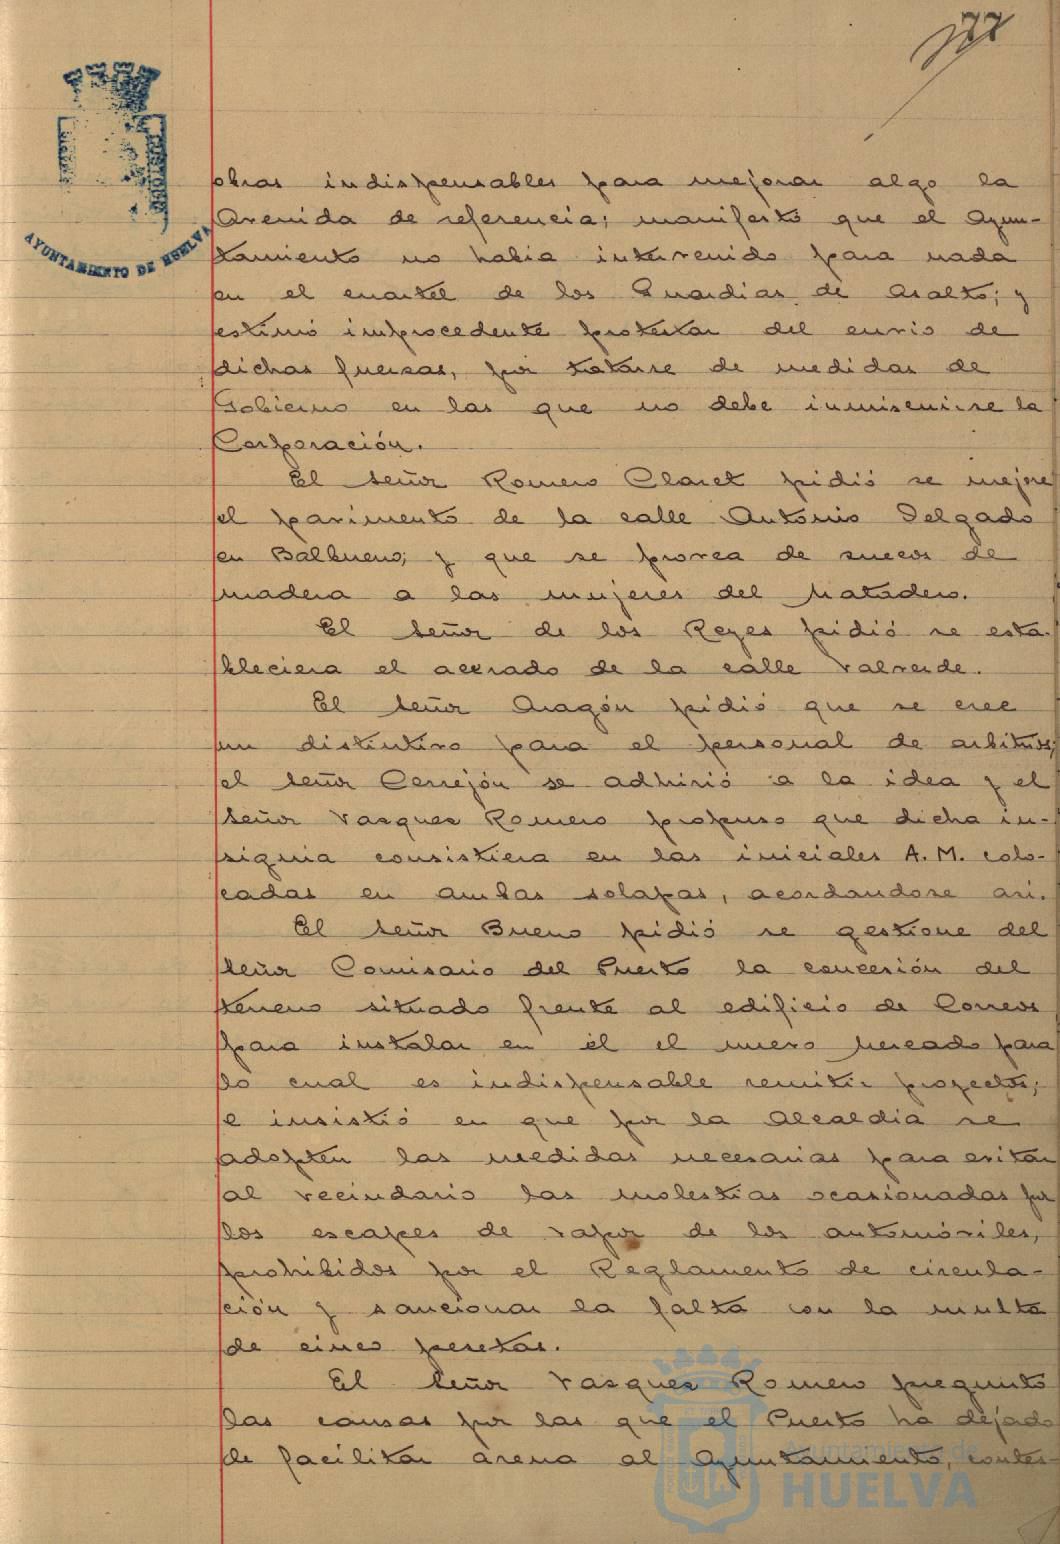 177
AYUNTAMIENTO DE HUELVA
obras indispensables para mejorar algo la
Avenida de referencia; manifestó que el Ayun-
tamiento no habia intervenido para nada
en el cuartel de los Guardias de Asalto; y
estimó improcedente protestar del envio de
dichas fuerzas, por tratarse de medidas de
Gobierno en las que no debe inmiscuirse la
Corporación.
El señor Romero Claret pidió se mejore
el pavimento de la calle Antonio Delgado
en Balbueno; y que se provea de suecos de
madera a las mujeres del Matadero.
El señor de los Reyes pidió se esta-
bleciera el acerado de la calle Valverde.
El señor Aragón pidió que se cree
un distintivo para el personal de arbitrios;
el señor Cerrejón se adhirió a la idea y el
señor Vasquez Romero propuso que dicha in-
signia consistiera en las iniciales A. M. colo-
cadas en ambas solapas, acordandose asi.
El señor Bueno pidió se gestione del
señor Comisario del Puerto la concesión del
terreno situado frente al edificio de Correos
para instalar en él el nuevo Mercado para
lo cual es indispensable remitir proyectos;
e insistió en que por la Alcaldia se
adopten las medidas necesarias para evitar
al vecindario las molestias ocasionadas por
los escapes de vapor de los automóviles,
prohibidos por el Reglamento de circula-
ción y sancionar la falta con la multa
de cinco pesetas.
El señor Vasquez Romero preguntó
las causas por las que el Puerto ha dejado
de facilitar arena al Ayuntamiento, contes-
Ayuntamiento de
HUELVA